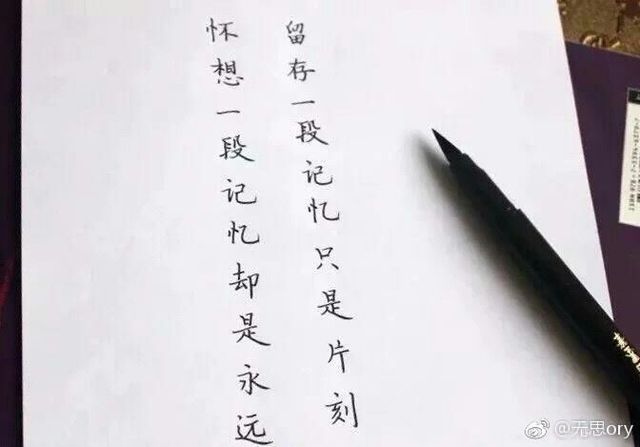 留存一段记忆只是片刻
怀想一段记忆却是永远
@无思ory